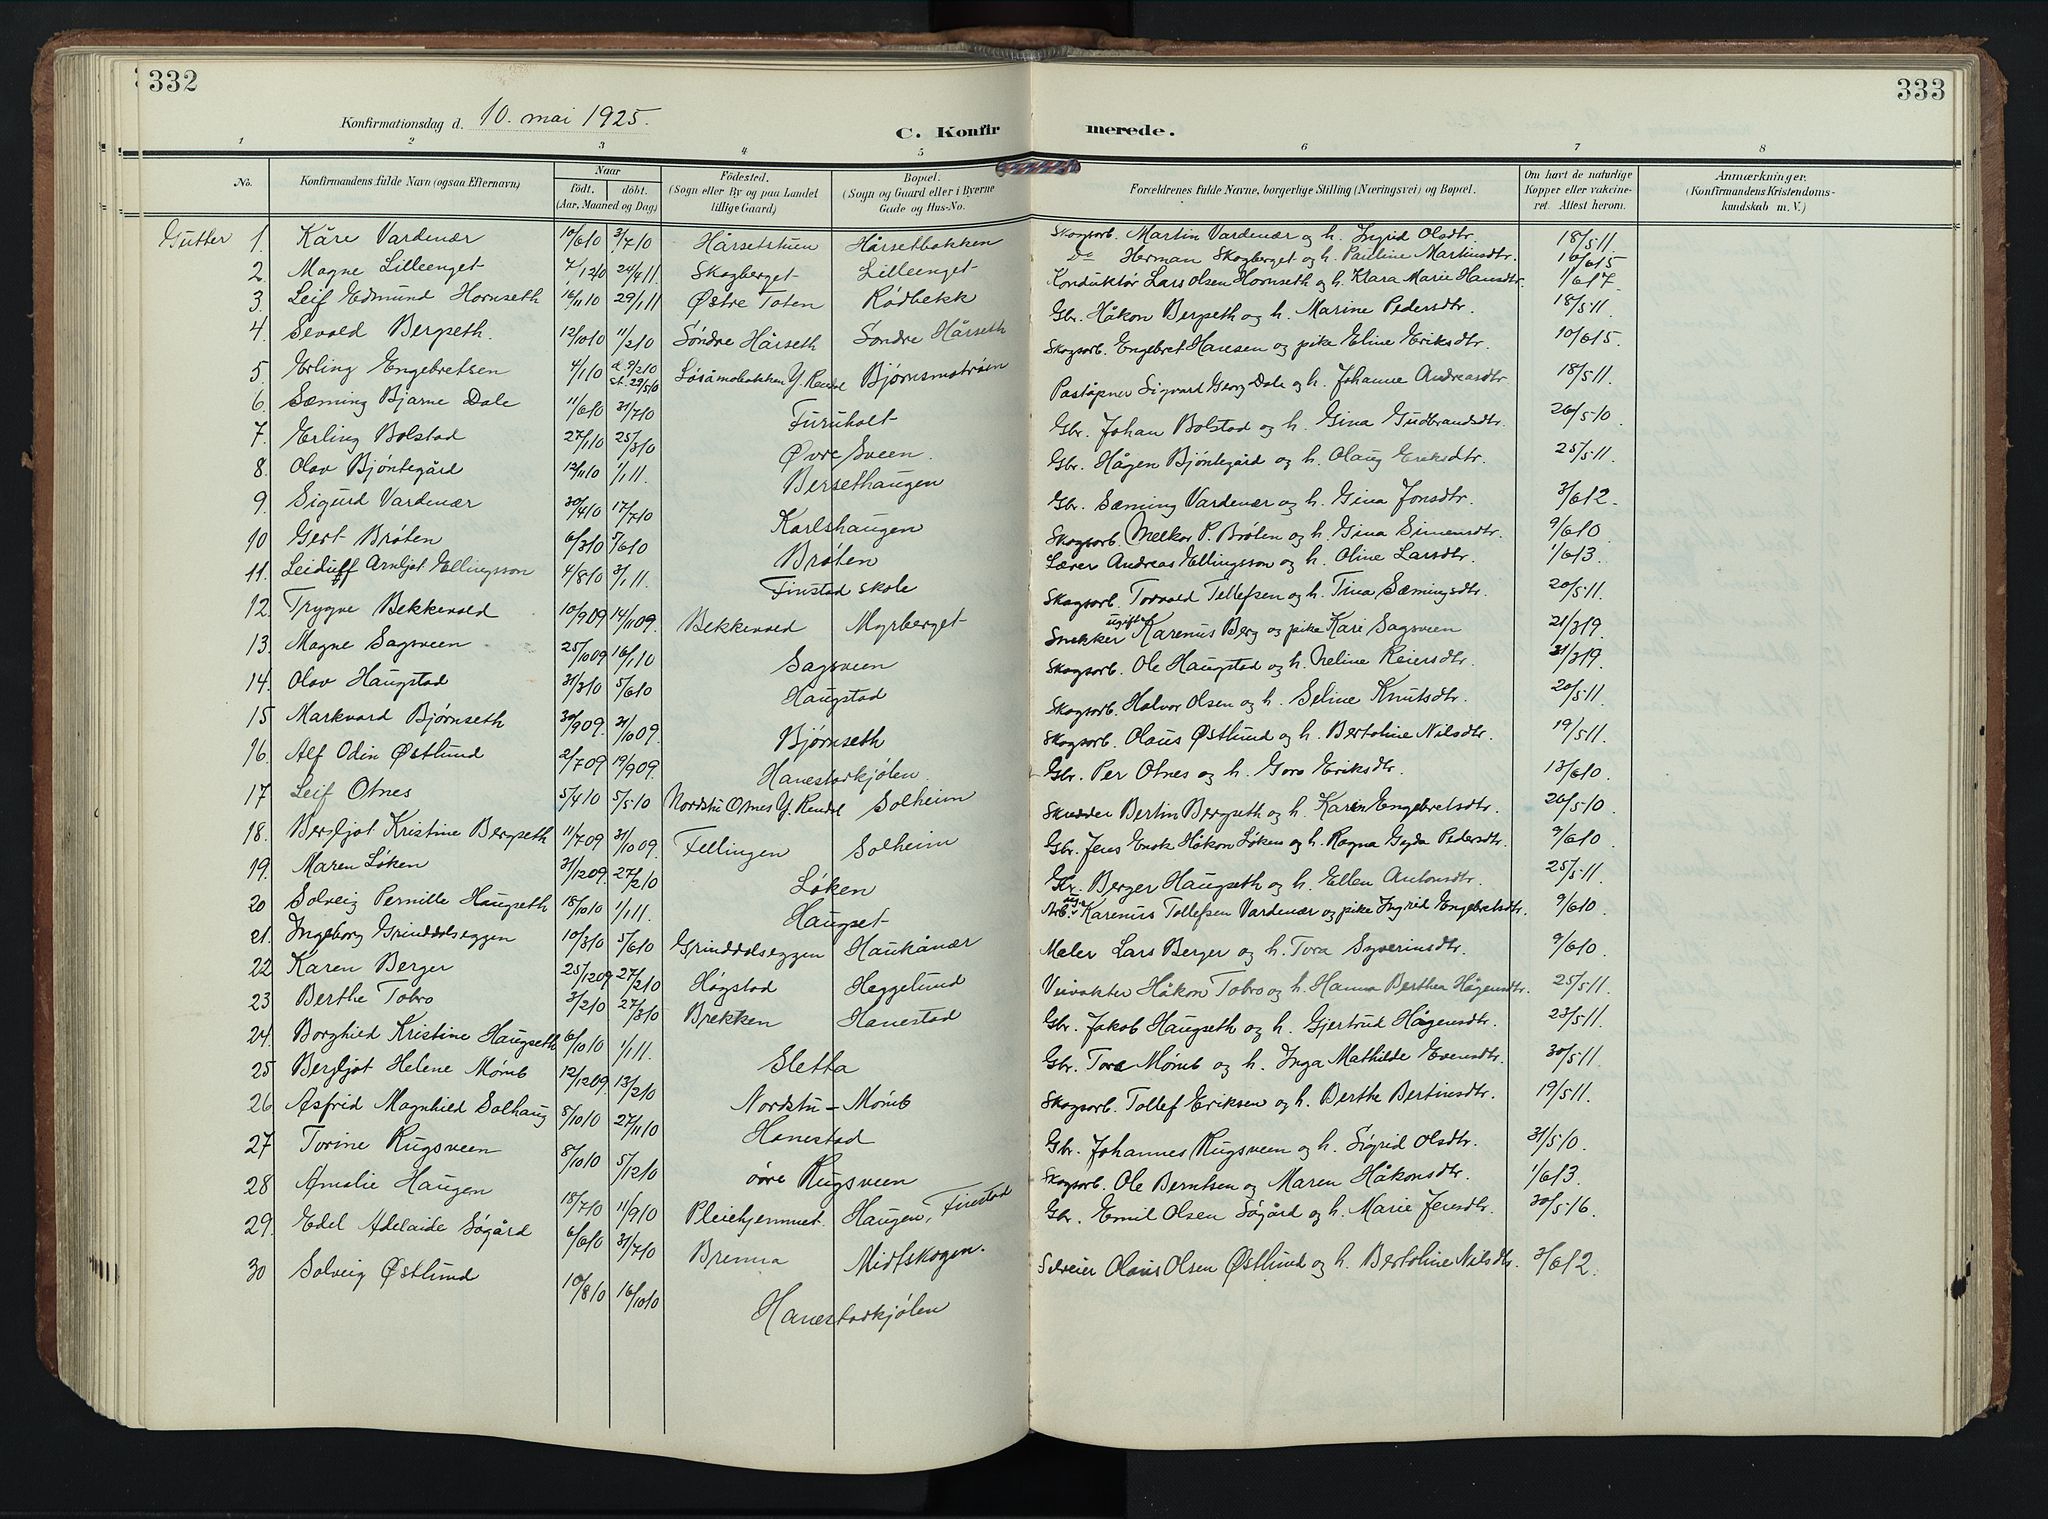 332
333
Konfirmationsdag d. 10. mai 1925.
C. Konfirmerede.
1 2 3 4 5 6 7 8
No. Konfirmandens fulde Navn (ogsaa Efternavn) Naar født. døbt. (Aar, Maaned og Dag) Fødested. (Sogn eller By og paa Landet tillige Gaard) Bopæl. (Sogn og Gaard eller i Byerne Gade og Hus-No. Forældrenes fulde Navne, borgerlige Stilling (Næringsvei) og Bopæl. Om havt de naturlige Kopper eller vakcineret. Attest herom. Anmærkninger. (Konfirmandens Kristendomskundskab m. V.)
Gutter 1. Kåre Vardenær 10/6 10 3/7 10 Hårsetstuen Hårsetbakken Skogsarb. Martin Vardenær og h. Ingrid Olsdtr. 18/5 11.
2. Magne Lilleenget 7/12 10 24/4 11. Skogberget Lilleenget Do Herman Skogberget og h. Pauline Martinsdtr. 16/6 15
3. Leif Edmund Hornseth 16/11 10 29/1 11 Østre Toten Rødbekk Konduktør Lars Olsen Hornseth og h. Klara Marie Hansdtr. 1/6 17
4. Sevald Bergseth. 12/10 10 11/2 10 Søndre Hårseth Søndre Hårseth Gbr. Håkon Bergseth og h. Marine Pedersdtr. 18/5 11.
5. Erling Engebretsen 4/1 10 d. 9/2 10 st. 29/5 10 Løsåmobakken Y. Rendal Bjørnsmotrøen Skogsarb. Engebret Hansen og pike Eline Eriksdtr. 10/6 15.
6. Sæming Bjarne Dale 11/6 10 31/7 10 Furuholt Poståpner Sigvard Georg Dale og h. Johanne Andreasdtr 18/5 11.
7. Erling Bolstad 27/1 10 25/3 10 Øvre Sveen. Gbr. Johan Bolstad og h. Gina Gudbrandsdtr. 26/5 10.
8. Olav Bjøntegård 12/11 10 1/1 11. Bersethaugen Gbr. Hågen Bjøntegård og h. Olaug Eriksdtr. 25/5 11.
9. Sigurd Vardenær 30/4 10 17/7 10 Karlshaugen Gbr. Sæming Vardenær og h. Gina Jonsdtr. 3/6 12.
10 Gert Brøten 6/3 10 5/6 10 Brøten Skogsarb. Melkor P. Brøten og h. Gina Simensdtr. 9/6 10
11. Leidulf Arnljot Ellingsson 4/8 10 3/1 11. Finstad skole Lærer Andreas Ellingsson og h. Oline Larsdtr. 1/6 13.
12. Trygve Bekkevold 10/9 09 14/11 09. Bekkevold Myrberget Skogsarb. Torvald Tellefsen og h. Tina Sæmingsdtr. 20/5 11.
13. Magne Sagsveen 25/10 09 16/1 10 Sagsveen Snekker ugift Karenus Berg og pike Kari Sagsveen 21/3 19.
14. Olav Haugstad 31/3 10 5/6 10 Haugstad Skogsarb. Ole Haugstad og h. Neline Reiersdtr. 31/3 19.
15 Markvard Bjørnseth 30/9 09. 31/10 09. Bjørnseth Skogsarb. Halvor Olsen og h. Seline Knutsdtr. 20/5 11.
16. Alf Odin Østlund 2/7 09 19/9 09. Hanestadkjølen. Skogsarb. Olaus Østlund og h. Bertoline Nilsdtr. 19/5 11.
17 Leif Otnes 5/4 10 5/5 10 Nordstu Otnes Y. Rendal Solheim Gbr. Per Otnes og h. Goro Eriksdtr. 13/6 10.
18. Bergljot Kristine Bergseth 11/7 09 31/10 09. Fellingen Solheim Skredder Bertin Bergseth og h. Karen Engebretsdtr. 26/5 10.
19. Maren Løken 31/12 09. 27/2 10 Løken Gbr. Jens Enok Håkon Løken og h. Ragna Gyda Pedersdtr. 9/6 10
20 Solveig Pernille Haugseth 18/10 10 1/1 11. Haugset Gbr. Berger Haugseth og h. Ellen Antonsdtr. 25/5 11.
21. Ingeborg Grinddalseggen 10/3 10 5/6 10 Grinddalseggen Haukånær Arb. ugift Karenus Tollefsen Vardenær og pike Ingrid Engebretsdtr. 9/6 10.
22 Karen Berger 25/12 09 27/2 10 Høgstad Heggelund Maler Lars Berger og h. Tora Syverinsdtr. 9/6 10.
23 Berthe Tobro 3/2 10 27/3 10 Brekken Hanestad Veivokter Håkon Tobro og h. Hanna Berthea Hågensdtr. 25/5 11.
24. Borghild Kristine Haugseth 6/10 10 1/1 11. Sletta Gbr. Jakob Haugseth og h. Gjertrud Hågensdtr. 23/5 11.
25 Bergljot Helene Mømb 12/12 09. 13/2 10 Nordstu - Mømb Gbr. Tore Mømb og h. Inga Mathilde Evensdtr. 30/5 11.
26 Asfrid Magnhild Solhaug 8/10 10 27/11 10 Hanestad Skogsarb. Tollef Eriksen og h. Berthe Bertinsdtr. 19/5 11.
27 Torine Rugsveen 8/10 10 5/12 10 øvre Rugsveen Gbr. Johannes Rugsveen og h. Sigrid Olsdtr. 31/5 10.
28 Amalie Haugen 18/7 10 11/9 10 Pleiehjemmet. Haugen, Finstad Skogsarb. Ole Berntsen og Maren Håkonsdtr. 1/6 13.
29. Edel Adelaide Søgård 6/6 10 31/7 10 Brenna Midtskogen. Gbr. Emil Olsen Søgård og h. Marie Jensdtr. 30/5 16.
30 Solveig Østlund 10/8 10 16/10 10 Hanestadkjølen Selveier Olaus Olsen Østlund og h. Bertoline Nilsdtr. 3/6 12.